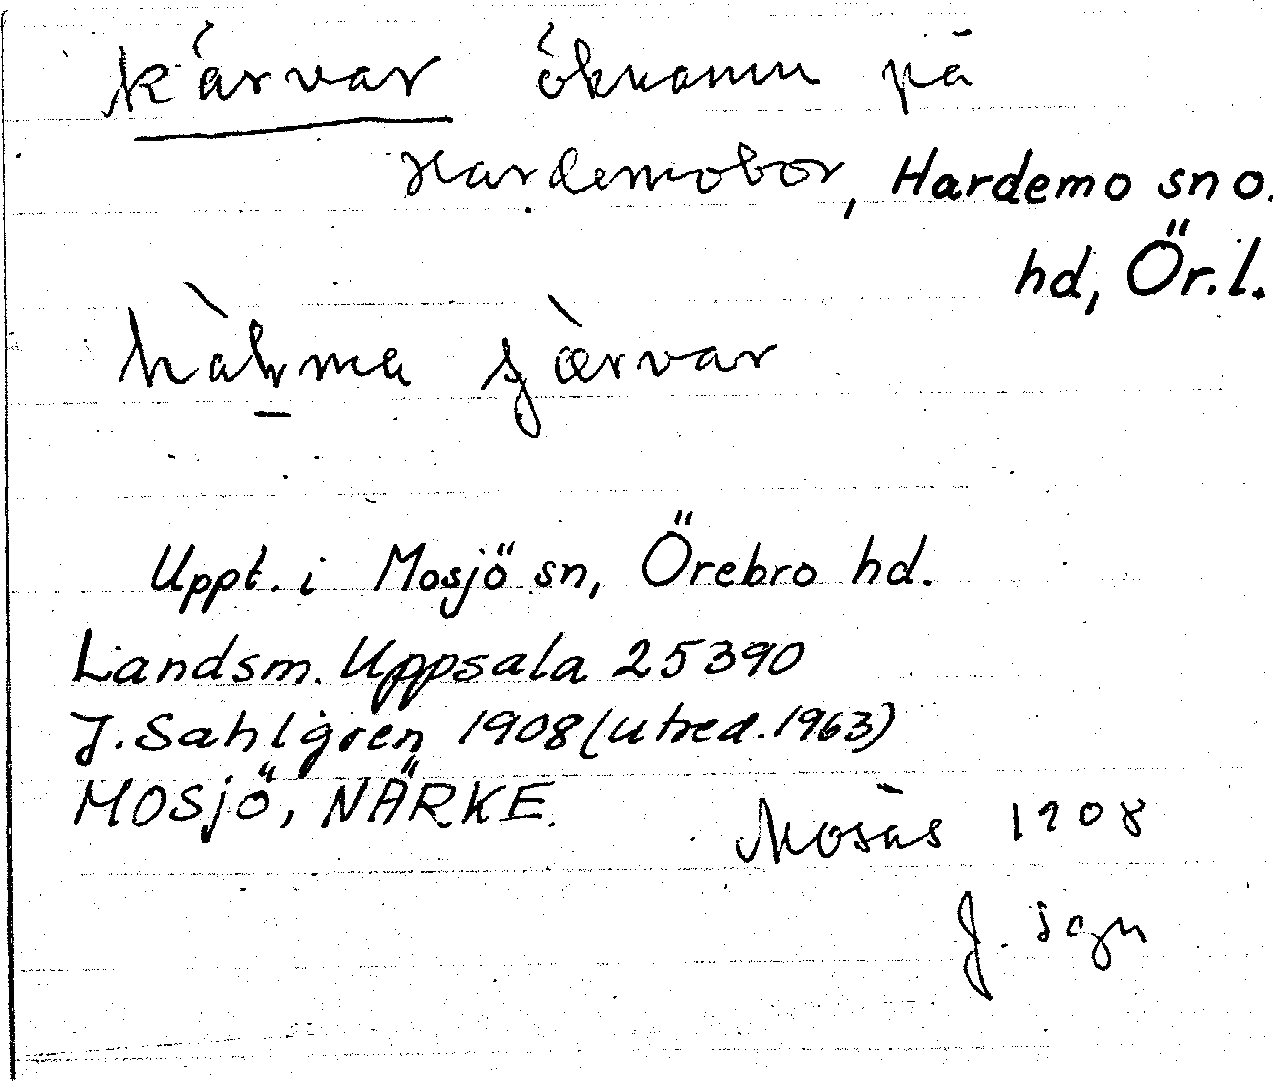 kärvar öknamn på
Hardemobor, Hardemo sn o.
hd, Ör.l.
hàḷma sjærvar
Uppt. i Mosjö sn, Örebro hd.
Landsm. Uppsala 25390
J. Sahlgren 1908 (utred. 1963)
MOSJÖ, NÄRKE.
Mosås 1908
J. Sgn